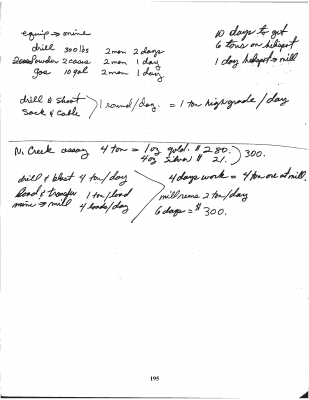 equip → mine
drill 300 lbs 2 man 2 days
powder 2 cases 2 man 1 day
gas 10 gal 2 man 1 day
10 days to get
6 tons on helispot
1 day helispot → mill
drill & shoot
sack & cable
1 round/day. = 1 ton high grade / day
N. Creek assay 4 ton = 1 oz gold. $ 280.
4 oz silver $ 21.
300.
drill & blast 4 ton/day
load & transfer 1 ton/load
mine → mill 4 loads/day
4 days work = 4 ton ore at mill.
mill runs 2 ton/day
6 days = $ 300.
195